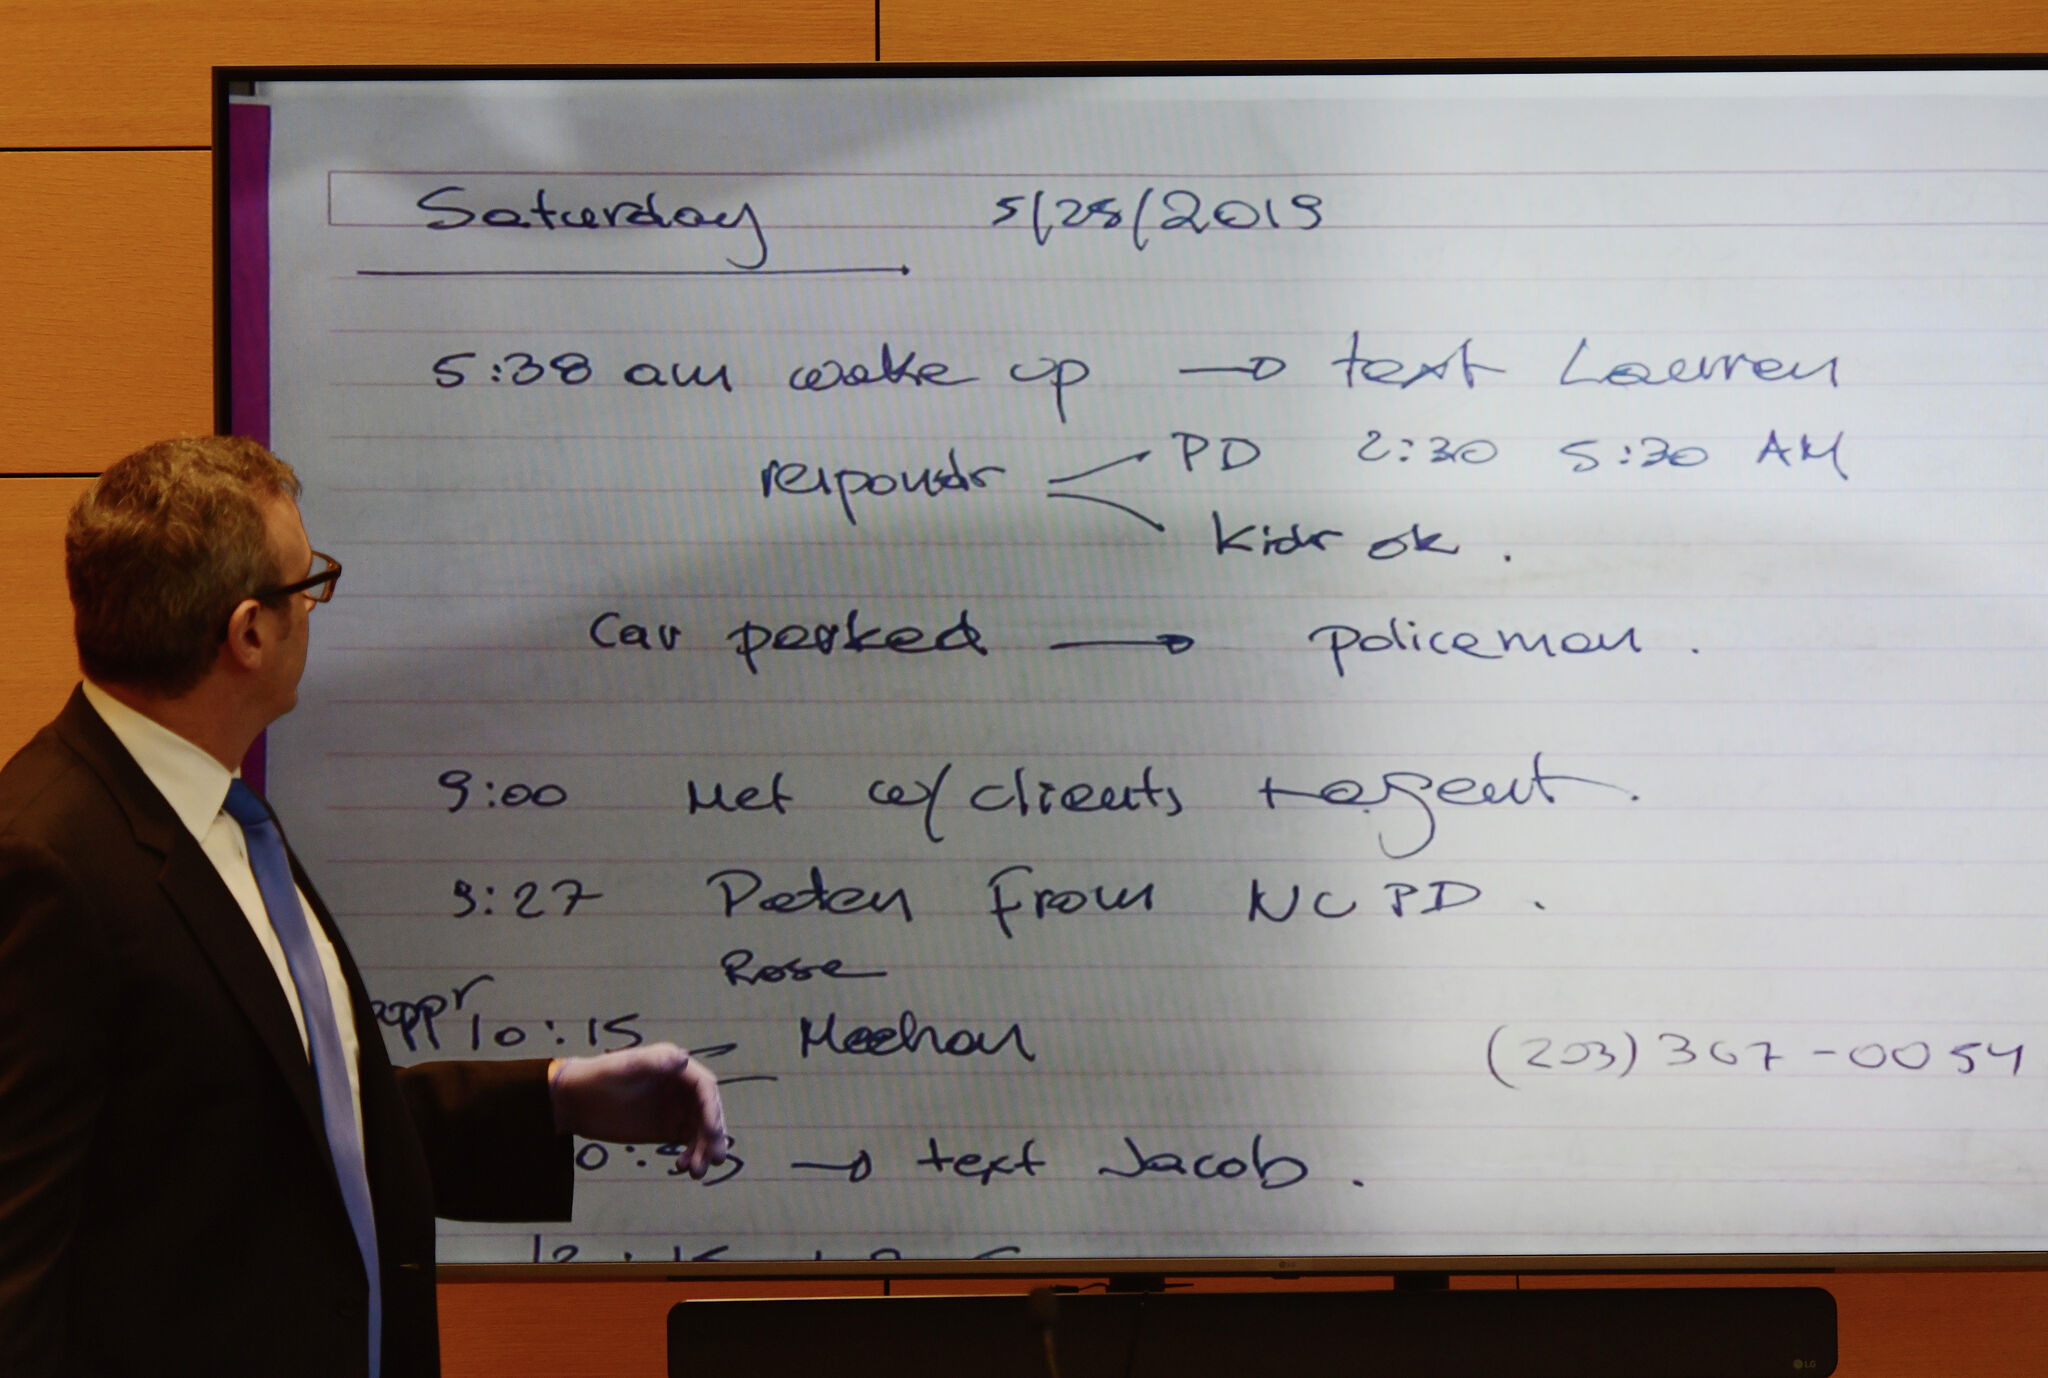 Saturday 5/25/2019
5:38 am wake up → text Lauren
responds PD 2:30 5:30 AM
Kids ok.
Car parked → policeman.
9:00 Met w/clients + agent.
9:27 from NCPD.
Rose
appr 10:15 Meehan
(203) 367-0054
→ text Jacob.
LG
LG